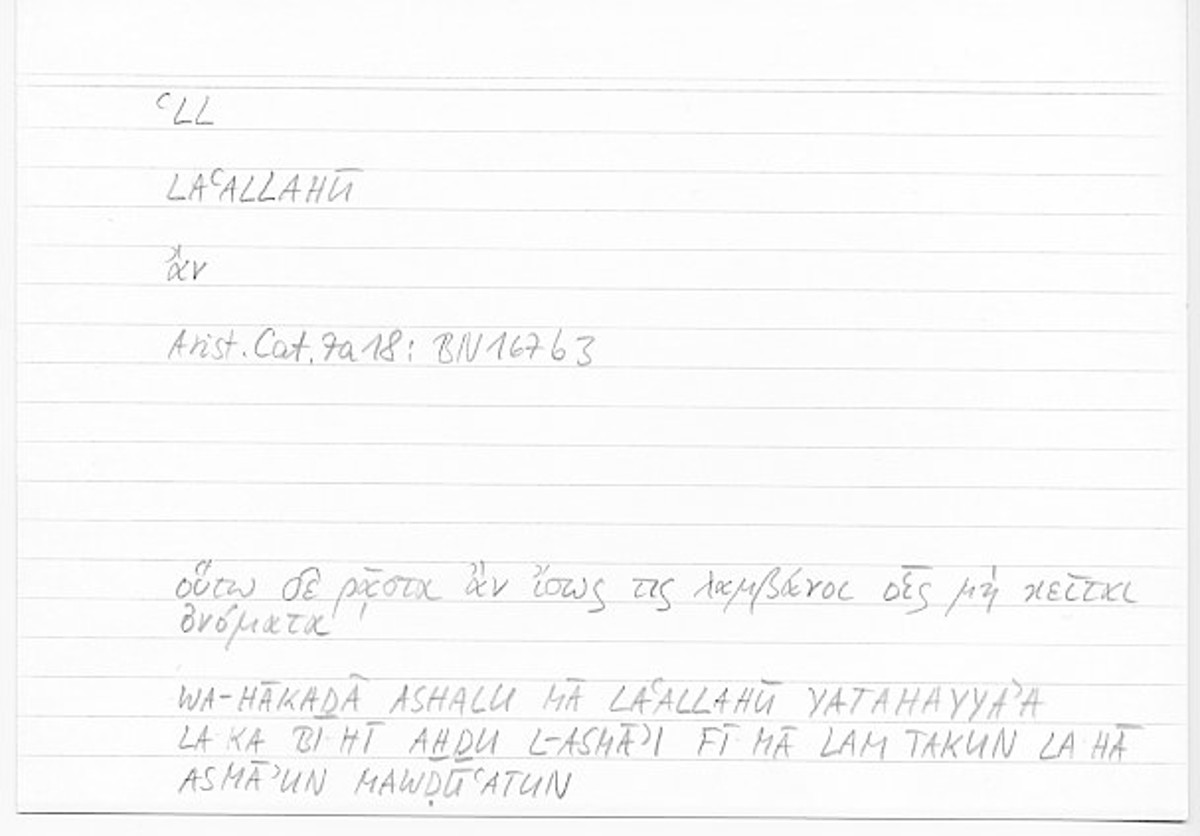 ʿLL
LAʿALLAHŪ
ἄν
Arist. Cat. 7a18: BN 167b3
οὕτω δὲ ῥᾷστα ἂν ἴσως τις λαμβάνοι οἷς μὴ κεῖται
ὀνόματα
WA-HĀKAḎĀ ASHALU MĀ LAʿALLAHŪ YATAHAYYAʾA
LA-KA BI-HĪ AḪḎU L-ASMĀʾI FĪ-MĀ LAM TAKUN LA-HĀ
ASMĀʾUN MAWḌŪʿATUN